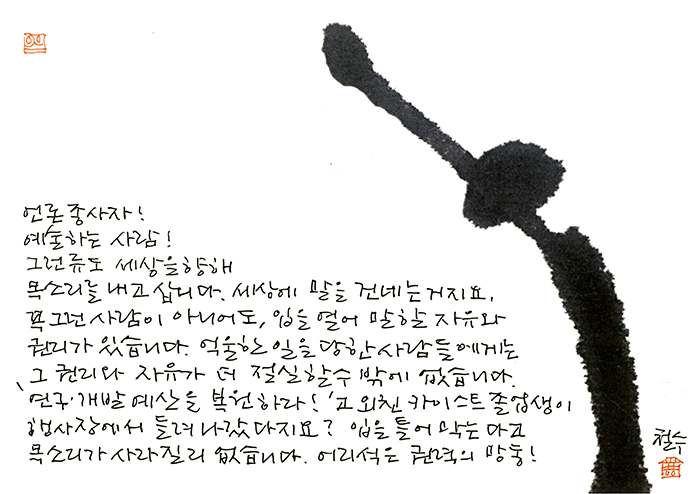 언론종사자!
예술하는 사람!
그런류도 세상을향해
목소리를 내고 삽니다. 세상에 말을 건네는거지요.
꼭 그런 사람이 아니어도, 입을 열어 말할 자유와
권리가 있습니다. 억울한 일을 당한 사람들에게는
그 권리와 자유가 더 절실할수 밖에 없습니다.
'연구·개발 예산을 복원하라!'고 외친 카이스트 졸업생이
행사장에서 들려나갔다지요? 입을 틀어 막는다고
목소리가 사라질리 없습니다. 어리석은 권력의 망동!
철수